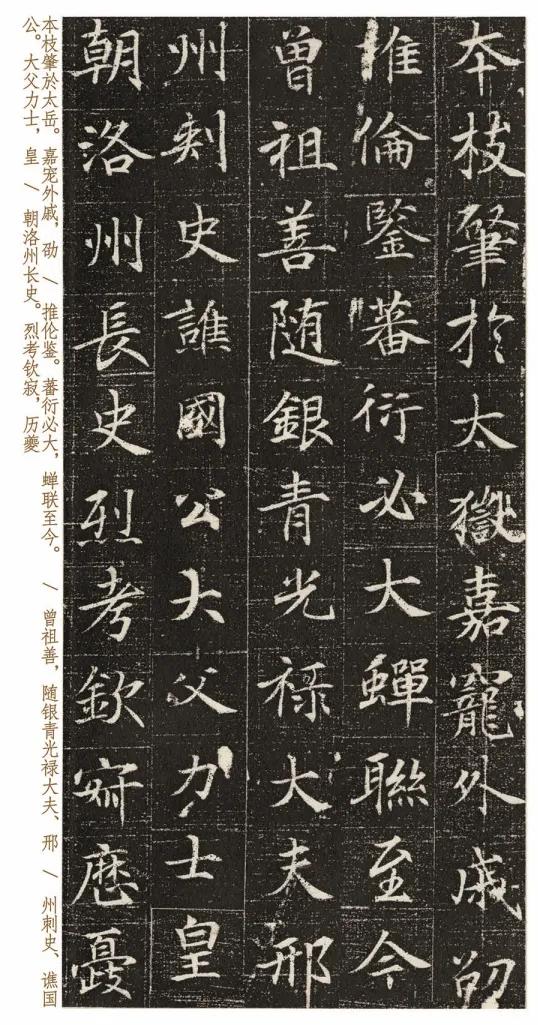 本枝肇於太嶽嘉寵外戚劭
推倫鑒蕃衍必大蟬聯至今
曾祖善随銀青光禄大夫邢
州刺史譙國公大父力士皇
朝洛州長史烈考欽寂歷夔
本枝肇於太岳。嘉宠外戚，劭 / 推伦鉴。蕃衍必大，蝉联至今。 / 曾祖善，随银青光禄大夫、邢 / 州刺史、谯国
公。大父力士，皇 / 朝洛州长史。烈考钦寂，历夔